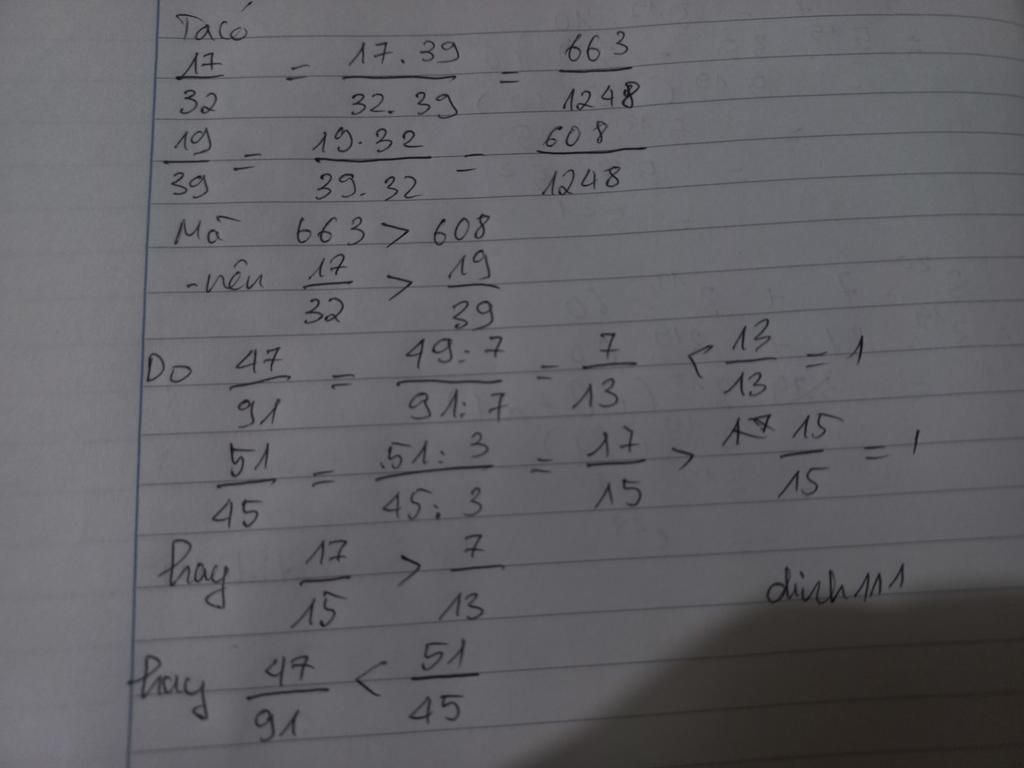 Ta có
17/32 = 17.39/32.39 = 663/1248
19/39 = 19.32/39.32 = 608/1248
Mà 663 > 608
-nên 17/32 > 19/39
Do 47/91 = 49:7/91:7 = 7/13 < 13/13 = 1
51/45 = 51:3/45:3 = 17/15 > 15/15 = 1
hay 17/15 > 7/13
dinh111
hay 47/91 < 51/45